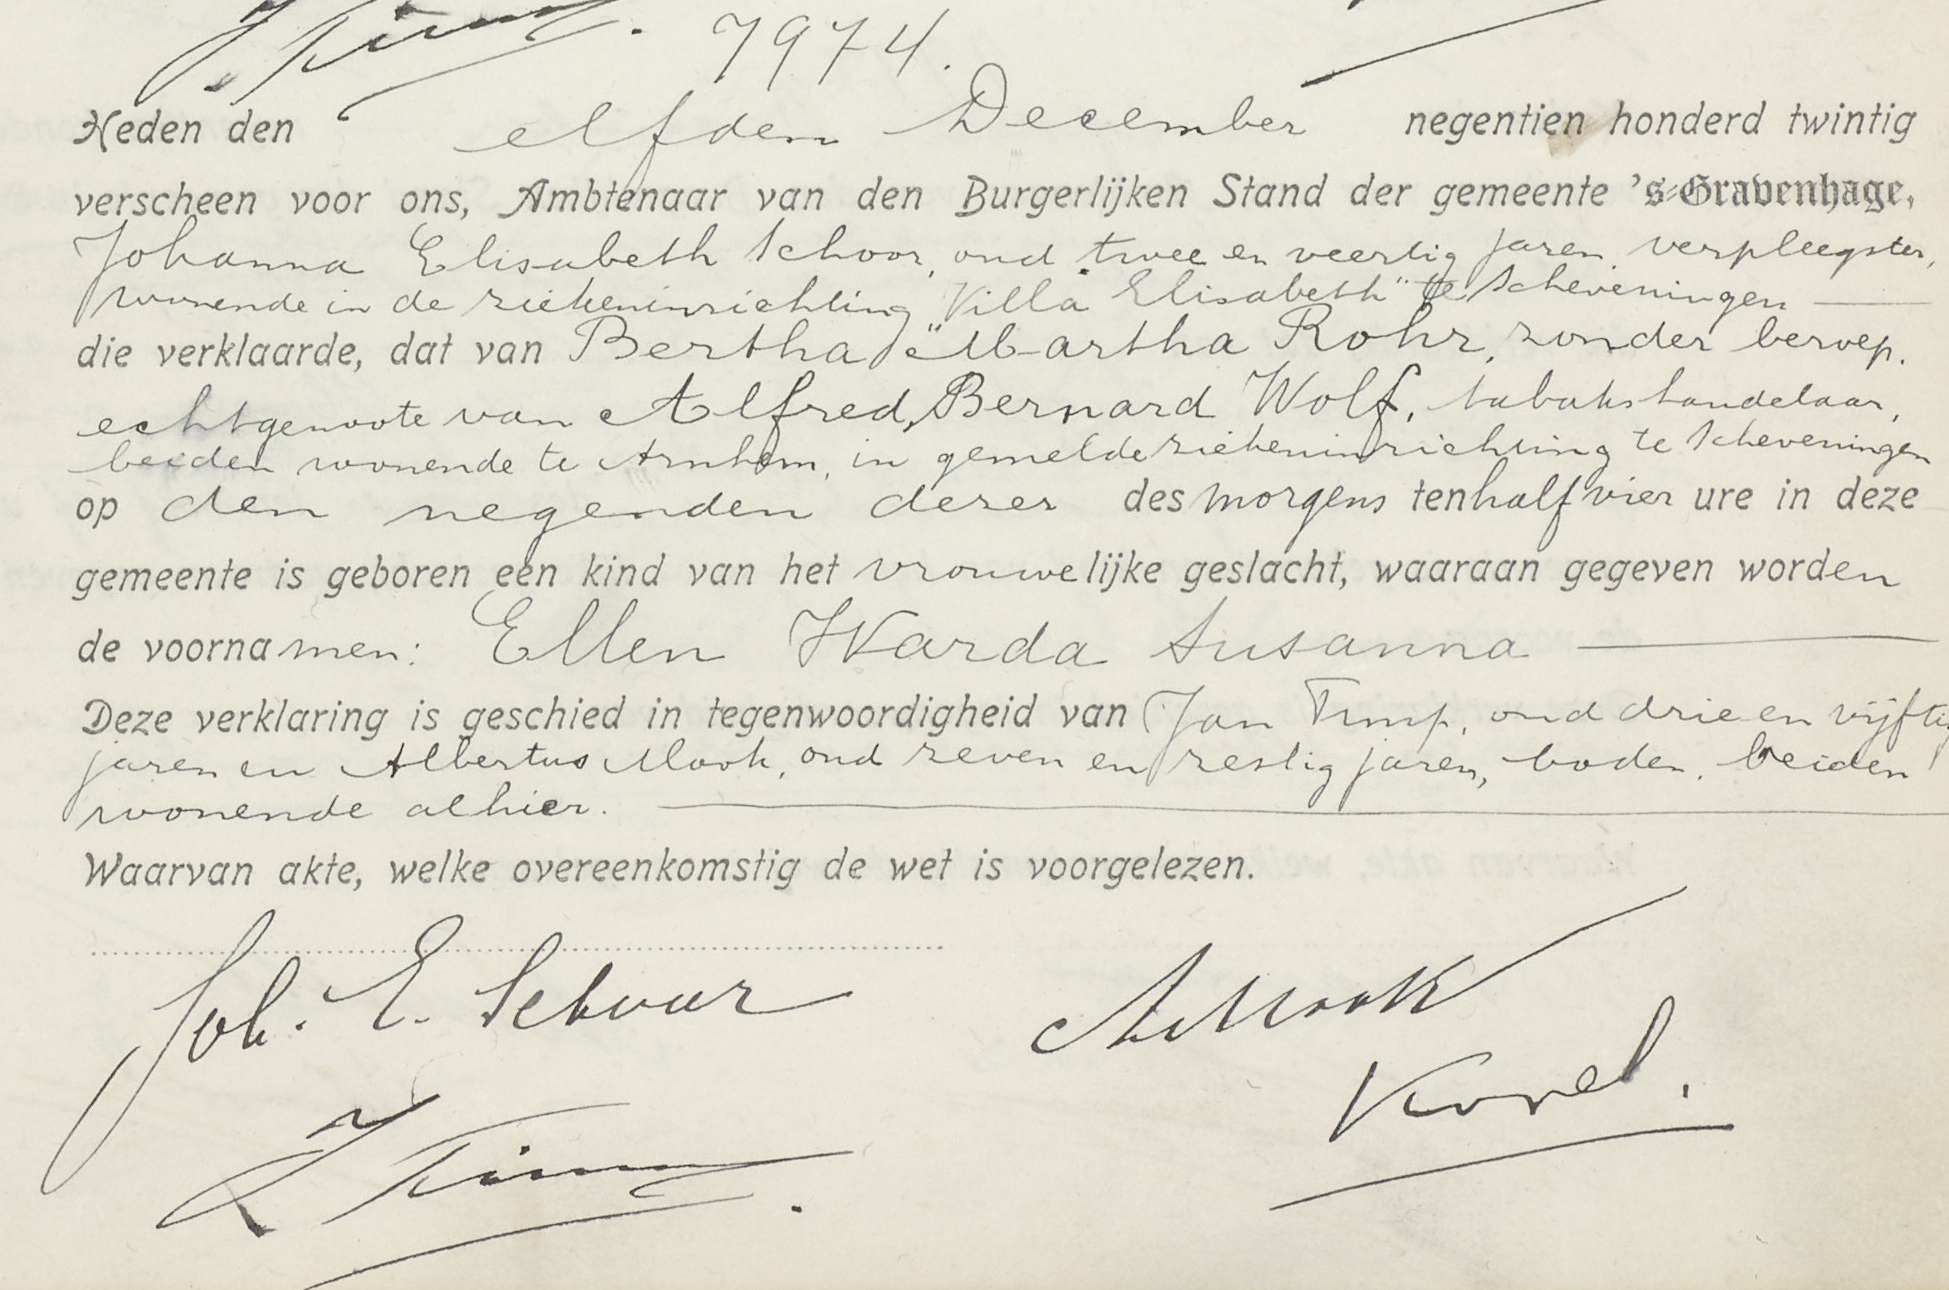 7974.
Heden den elfden December negentien honderd twintig
verscheen voor ons, Ambtenaar van den Burgerlijken Stand der gemeente 's-Gravenhage,
Johanna Elisabeth Schoor, oud twee en veertig jaren, verpleegster,
wonende in de ziekeninrichting "Villa Elisabeth" te Scheveningen
die verklaarde, dat van Bertha Martha Rohr, zonder beroep,
echtgenoote van Alfred, Bernard Wolf, tabakshandelaar,
beiden wonende te Arnhem, in gemelde ziekeninrichting te Scheveningen
op den negenden dezer des morgens ten half vier ure in deze
gemeente is geboren een kind van het vrouwelijke geslacht, waaraan gegeven worden
de voornamen: Ellen Warda Susanna
Deze verklaring is geschied in tegenwoordigheid van Jan Timp, oud drie en vijftig
jaren en Albertus Mook, oud zeven en zestig jaren, boden, beiden
wonende alhier.
Waarvan akte, welke overeenkomstig de wet is voorgelezen.
Joh. E. Schoor
A Mook